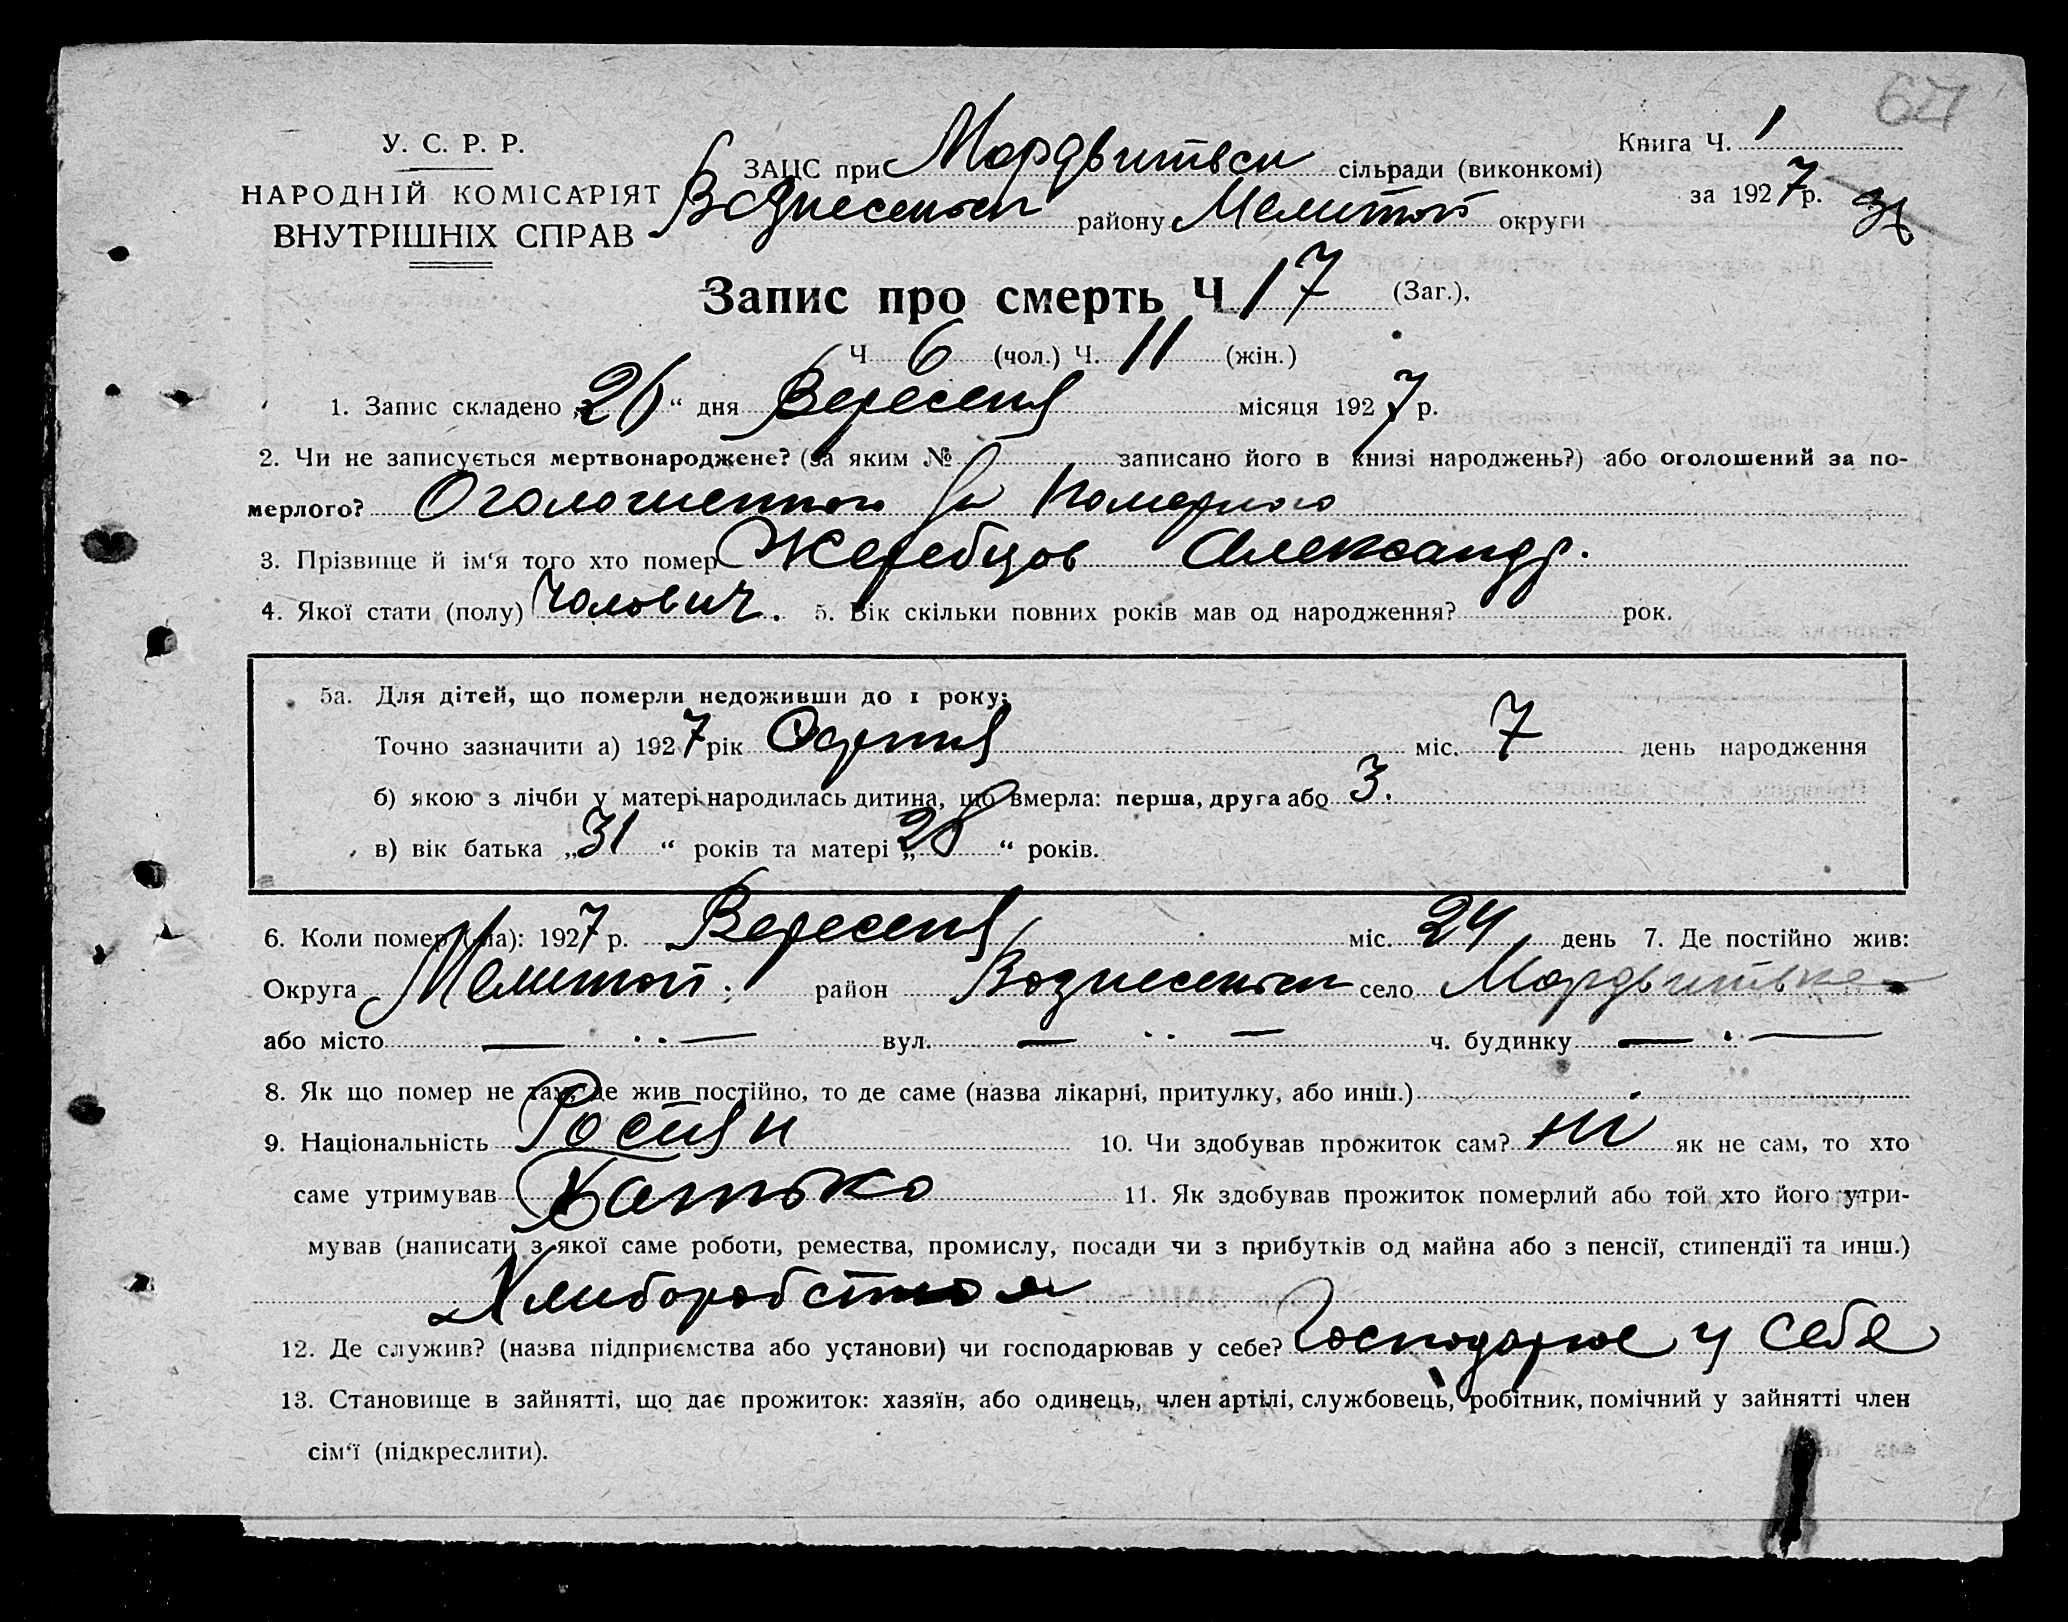 64
У. С. Р. Р.
НАРОДНІЙ КОМІСАРІЯТ
ВНУТРІШНІХ СПРАВ
ЗАЦС при Мордвитвськ сільради (виконкомі)
Вознесенськ району Мелитоп округи
Книга Ч. 1
за 1927 р.
Запис про смерть Ч 17 (Заг.),
Ч 6 (чол.) Ч. 11 (жін.)
1. Запис складено „26“ дня Вересеня місяця 1927 р.
2. Чи не записується мертвонароджене? (за яким № записано його в книзі народжень?) або оголошений за по-
мерлого? Оголошенного За Померного
3. Прізвище й ім‘я того хто помер Жеребцов Александр.
4. Якої стати (полу) Чолович. 5. Вік скільки повних років мав од народження? рок.
5а. Для дітей, що померли недоживши до 1 року:
Точно зазначити а) 1927 рік Серпня міс. 7 день народження
б) якою з лічби у матері народилась дитина, що вмерла: перша, друга або 3.
в) вік батька „31“ років та матері „28“ років.
6. Коли помер (ла): 1927 р. Вересеня міс. 24 день 7. Де постійно жив:
Округа Мелитоп. район Вознесенськ село Мордвитвка
або місто — · · — вул. — · · — ч. будинку — · —
8. Як що помер не там, де жив постійно, то де саме (назва лікарні, притулку, або инш.)
9. Національність Росіян 10. Чи здобував прожиток сам? ні як не сам, то хто
саме утримував Батько 11. Як здобував прожиток померлий або той хто його утри-
мував (написати з якої саме роботи, ремества, промислу, посади чи з прибутків од майна або з пенсії, стипендії та инш.)
Хлиборобство
12. Де служив? (назва підприємства або установи) чи господарював у себе? Господарює у себе
13. Становище в зайнятті, що дає прожиток: хазяїн, або одинець, член артілі, службовець, робітник, помічний у зайнятті член
сім‘ї (підкреслити).